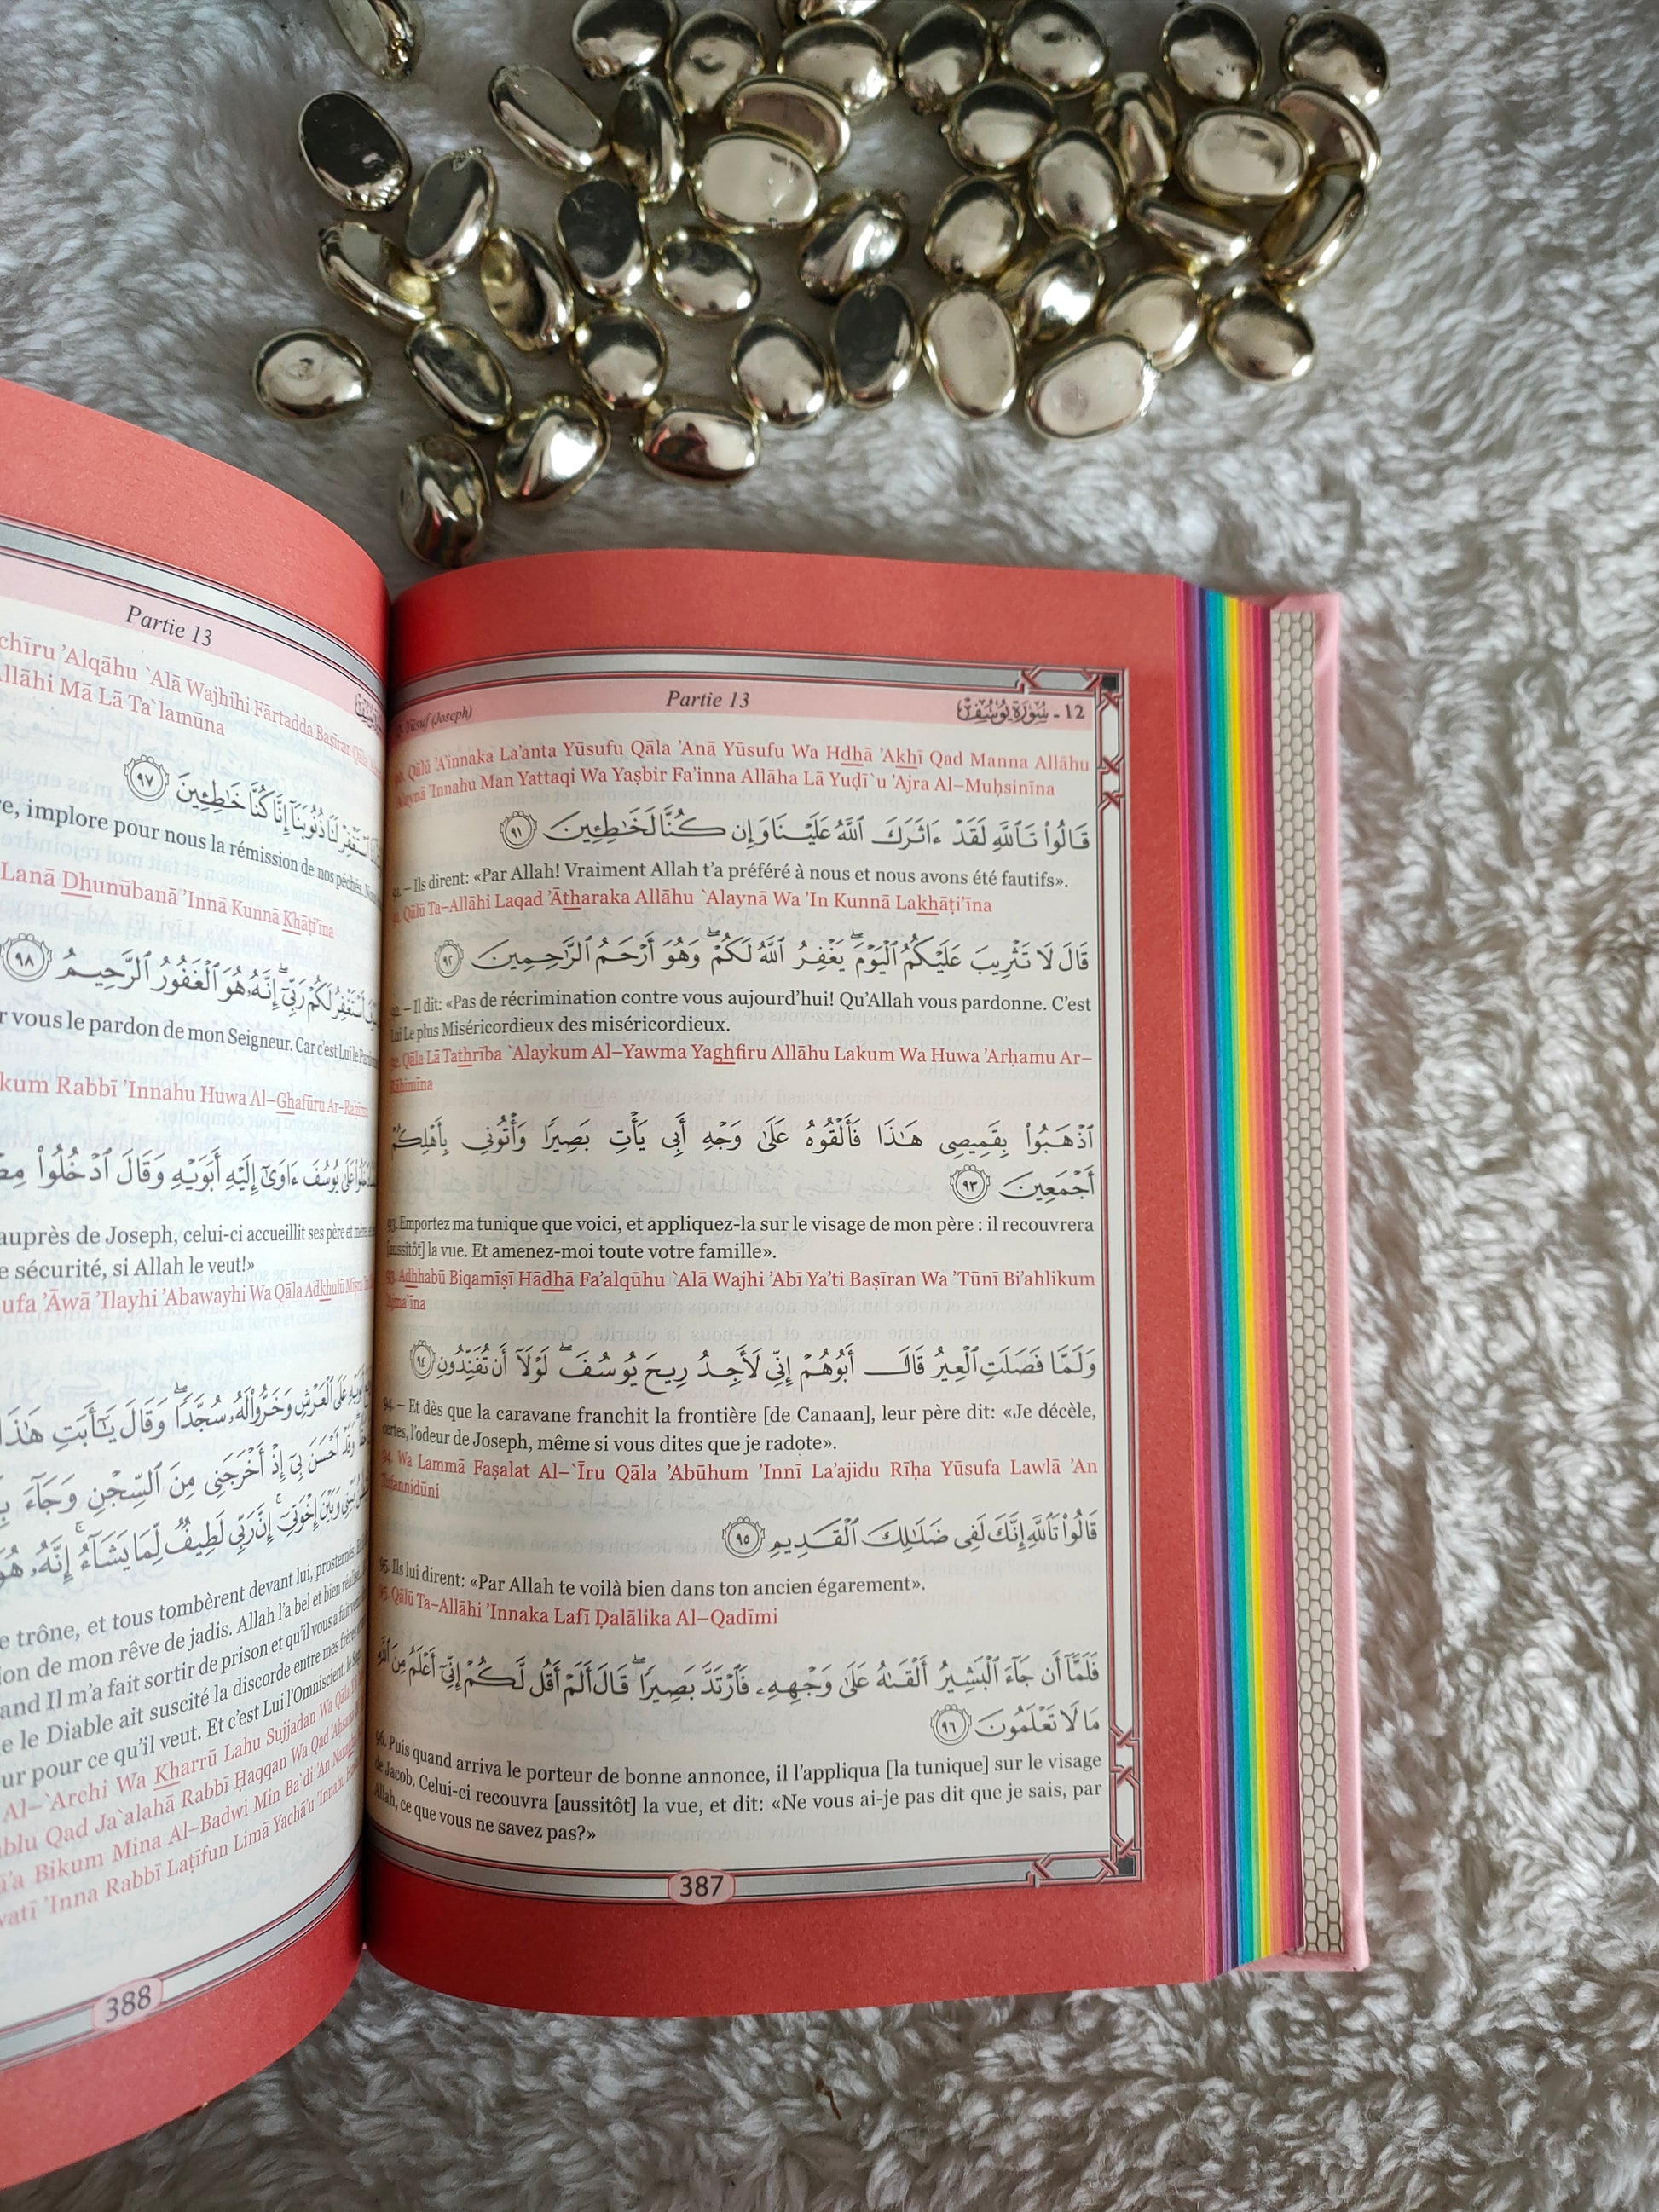 12. Yūsuf (Joseph)
Partie 13
12 - سُورَة يُوسُف
90. Qālū 'A'innaka La'anta Yūsufu Qāla 'Anā Yūsufu Wa Hdhā 'Akhī Qad Manna Allāhu
`Alaynā 'Innahu Man Yattaqi Wa Yaṣbir Fa'inna Allāha Lā Yuḍī`u 'Ajra Al–Muḥsinīna
قَالُوا۟ تَٱللَّهِ لَقَدْ ءَاثَرَكَ ٱللَّهُ عَلَيْنَا وَإِن كُنَّا لَخَٰطِـِٔينَ ٩١
91. – Ils dirent: «Par Allah! Vraiment Allah t'a préféré à nous et nous avons été fautifs».
91. Qālū Ta–Allāhi Laqad 'Ātharaka Allāhu `Alaynā Wa 'In Kunnā Lakhāṭi'īna
قَالَ لَا تَثْرِيبَ عَلَيْكُمُ ٱلْيَوْمَ ۖ يَغْفِرُ ٱللَّهُ لَكُمْ ۖ وَهُوَ أَرْحَمُ ٱلرَّٰحِمِينَ ٩٢
92. – Il dit: «Pas de récrimination contre vous aujourd'hui! Qu'Allah vous pardonne. C'est
Lui Le plus Miséricordieux des miséricordieux.
92. Qāla Lā Tathrība `Alaykum Al–Yawma Yaghfiru Allāhu Lakum Wa Huwa 'Arḥamu Ar–
Rāḥimīna
ٱذْهَبُوا۟ بِقَمِيصِى هَٰذَا فَأَلْقُوهُ عَلَىٰ وَجْهِ أَبِى يَأْتِ بَصِيرًا وَأْتُونِى بِأَهْلِكُمْ
أَجْمَعِينَ ٩٣
93. Emportez ma tunique que voici, et appliquez-la sur le visage de mon père : il recouvrera
[aussitôt] la vue. Et amenez-moi toute votre famille».
93. Adhhabū Biqamīṣī Hādhā Fa'alqūhu `Alā Wajhi 'Abī Ya'ti Baṣīran Wa 'Tūnī Bi'ahlikum
'Ajma`īna
وَلَمَّا فَصَلَتِ ٱلْعِيرُ قَالَ أَبُوهُمْ إِنِّى لَأَجِدُ رِيحَ يُوسُفَ ۖ لَوْلَآ أَن تُفَنِّدُونِ ٩٤
94. – Et dès que la caravane franchit la frontière [de Canaan], leur père dit: «Je décèle,
certes, l'odeur de Joseph, même si vous dites que je radote».
94. Wa Lammā Faṣalat Al–`Īru Qāla 'Abūhum 'Innī La'ajidu Rīḥa Yūsufa Lawlā 'An
Tufannidūni
قَالُوا۟ تَٱللَّهِ إِنَّكَ لَفِى ضَلَٰلِكَ ٱلْقَدِيمِ ٩٥
95. Ils lui dirent: «Par Allah te voilà bien dans ton ancien égarement».
95. Qālū Ta–Allāhi 'Innaka Lafī Ḍalālika Al–Qadīmi
فَلَمَّآ أَن جَآءَ ٱلْبَشِيرُ أَلْقَىٰهُ عَلَىٰ وَجْهِهِۦ فَٱرْتَدَّ بَصِيرًا ۖ قَالَ أَلَمْ أَقُل لَّكُمْ إِنِّىٓ أَعْلَمُ مِنَ ٱللَّهِ
مَا لَا تَعْلَمُونَ ٩٦
96. Puis quand arriva le porteur de bonne annonce, il l'appliqua [la tunique] sur le visage
de Jacob. Celui-ci recouvra [aussitôt] la vue, et dit: «Ne vous ai-je pas dit que je sais, par
Allah, ce que vous ne savez pas?»
387
Partie 13
'Alqāhu `Alā Wajhihi Fārtadda Baṣīran Qāla
Mā Lā Ta`lamūna
ٱسْتَغْفِرْ لَنَا ذُنُوبَنَآ إِنَّا كُنَّا خَٰطِـِٔينَ ٩٧
implore pour nous la rémission de nos péchés.
Lanā Dhunūbanā 'Innā Kunnā Khāṭi'īna
أَسْتَغْفِرُ لَكُمْ رَبِّىٓ ۖ إِنَّهُۥ هُوَ ٱلْغَفُورُ ٱلرَّحِيمُ ٩٨
vous le pardon de mon Seigneur. Car c'est Lui le
Rabbī 'Innahu Huwa Al–Ghafūru Ar–Raḥīmu
عَلَىٰ يُوسُفَ ءَاوَىٰٓ إِلَيْهِ أَبَوَيْهِ وَقَالَ ٱدْخُلُوا۟
auprès de Joseph, celui-ci accueillit ses père et mère,
sécurité, si Allah le veut!»
'Āwā 'Ilayhi 'Abawayhi Wa Qāla Adkhulū
عَلَى ٱلْعَرْشِ وَخَرُّوا۟ لَهُۥ سُجَّدًا ۖ وَقَالَ يَٰٓأَبَتِ هَٰذَا
وَقَدْ أَحْسَنَ بِىٓ إِذْ أَخْرَجَنِى مِنَ ٱلسِّجْنِ وَجَآءَ
وَبَيْنَ إِخْوَتِىٓ ۚ إِنَّ رَبِّى لَطِيفٌ لِّمَا يَشَآءُ ۚ إِنَّهُۥ هُوَ
trône, et tous tombèrent devant lui, prosternés.
de mon rêve de jadis. Allah l'a bel et bien réalisé
Il m'a fait sortir de prison et qu'il vous a fait
le Diable ait suscité la discorde entre mes frères
pour ce qu'il veut. Et c'est Lui l'Omniscient, le
Al–`Archi Wa Kharrū Lahu Sujjadan Wa Qāla
Qad Ja`alahā Rabbī Ḥaqqan Wa Qad 'Aḥsana
Bikum Mina Al–Badwi Min Ba`di 'An
'Inna Rabbī Laṭīfun Limā Yachā'u 'Innahu
388